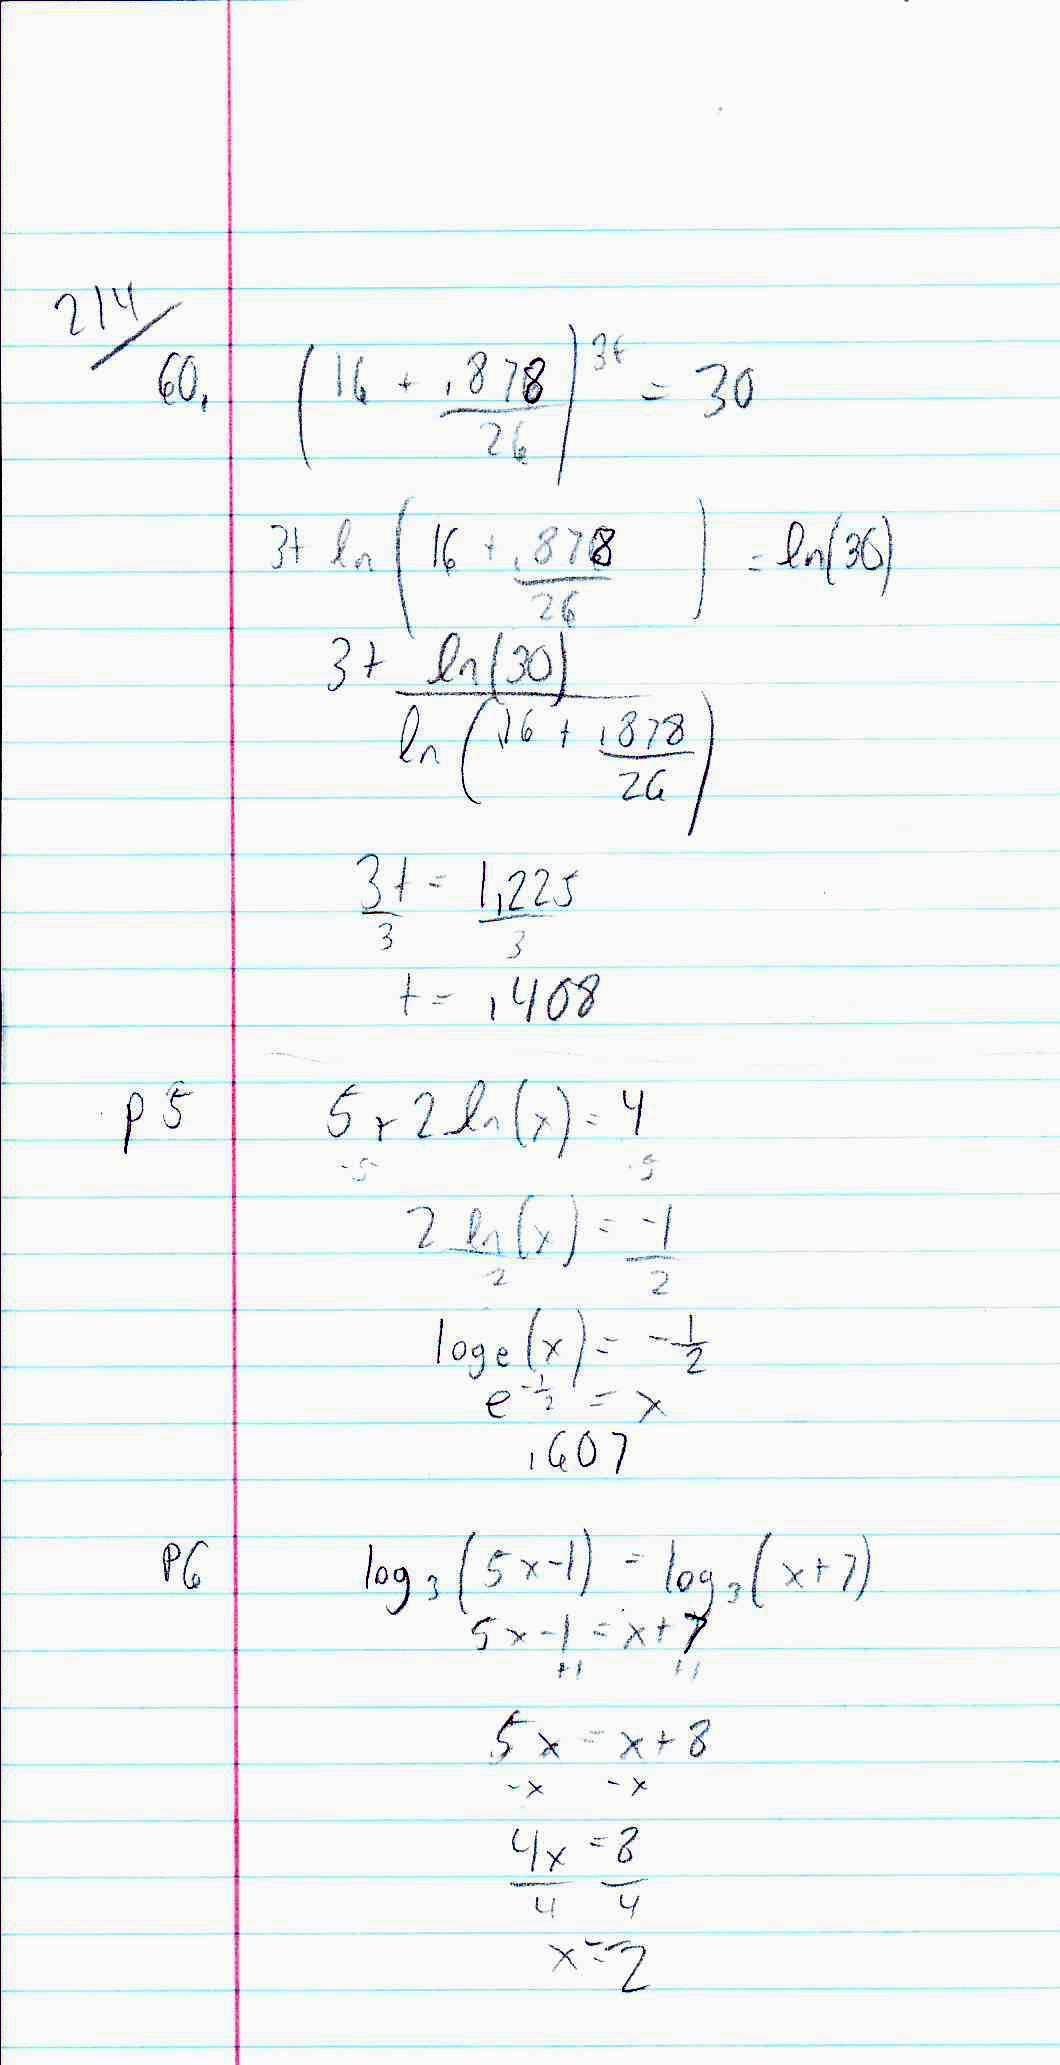 214/
60. (16 + .878/26)^3t = 30
3t ln(16 + .878/26) = ln(30)
3t ln(30)/ln(16 + .878/26)
3t/3 = 1.225/3
t = .408
P5 5 + 2 ln(x) = 4
-5 -5
2 ln(x)/2 = -1/2
log e (x) = -1/2
e^-1/2 = x
.607
P6 log₃(5x-1) = log₃(x+7)
5x-1 = x+7
+1 +1
5x = x+8
-x -x
4x/4 = 8/4
x = 2